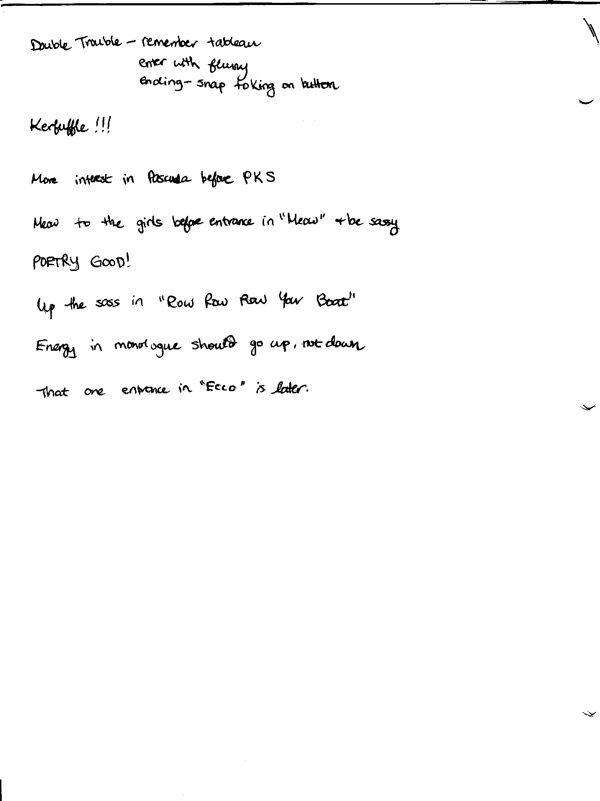 Double Trouble - remember tableau
enter with flurry
ending - snap to King on button
Kerfuffle !!!
More interest in before PKS
Meow to the girls before entrance in "Meow" + be sassy
POETRY GOOD!
Up the sass in "Row Row Row Your Boat"
Energy in monologue should go up, not down
That one entrance in "Ecco" is later.